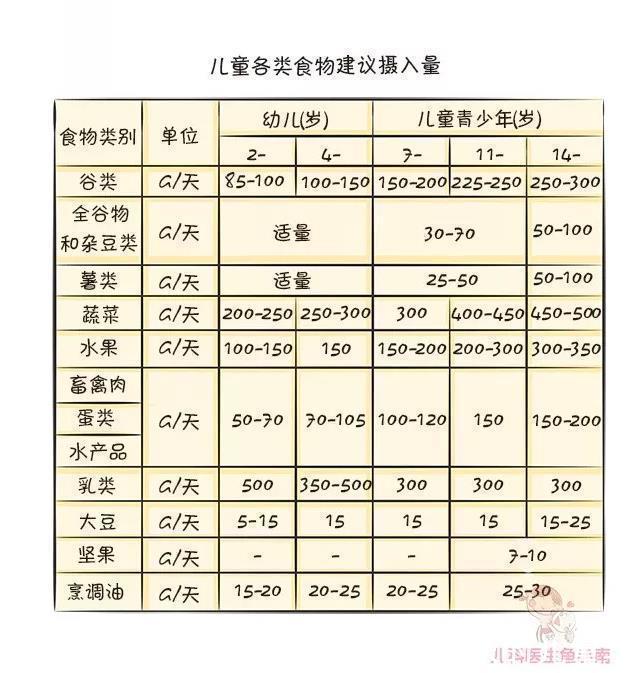 儿童各类食物建议摄入量
食物类别 单位 幼儿(岁) 儿童青少年(岁)
2- 4- 7- 11- 14-
谷类 G/天 85-100 100-150 150-200 225-250 250-300
全谷物
和杂豆类 G/天 适量 30-70 50-100
薯类 G/天 适量 25-50 50-100
蔬菜 G/天 200-250 250-300 300 400-450 450-500
水果 G/天 100-150 150 150-200 200-300 300-350
畜禽肉
蛋类 G/天 50-70 70-105 100-120 150 150-200
水产品
乳类 G/天 500 350-500 300 300 300
大豆 G/天 5-15 15 15 15 15-25
坚果 G/天 - - - 7-10
烹调油 G/天 15-20 20-25 20-25 25-30